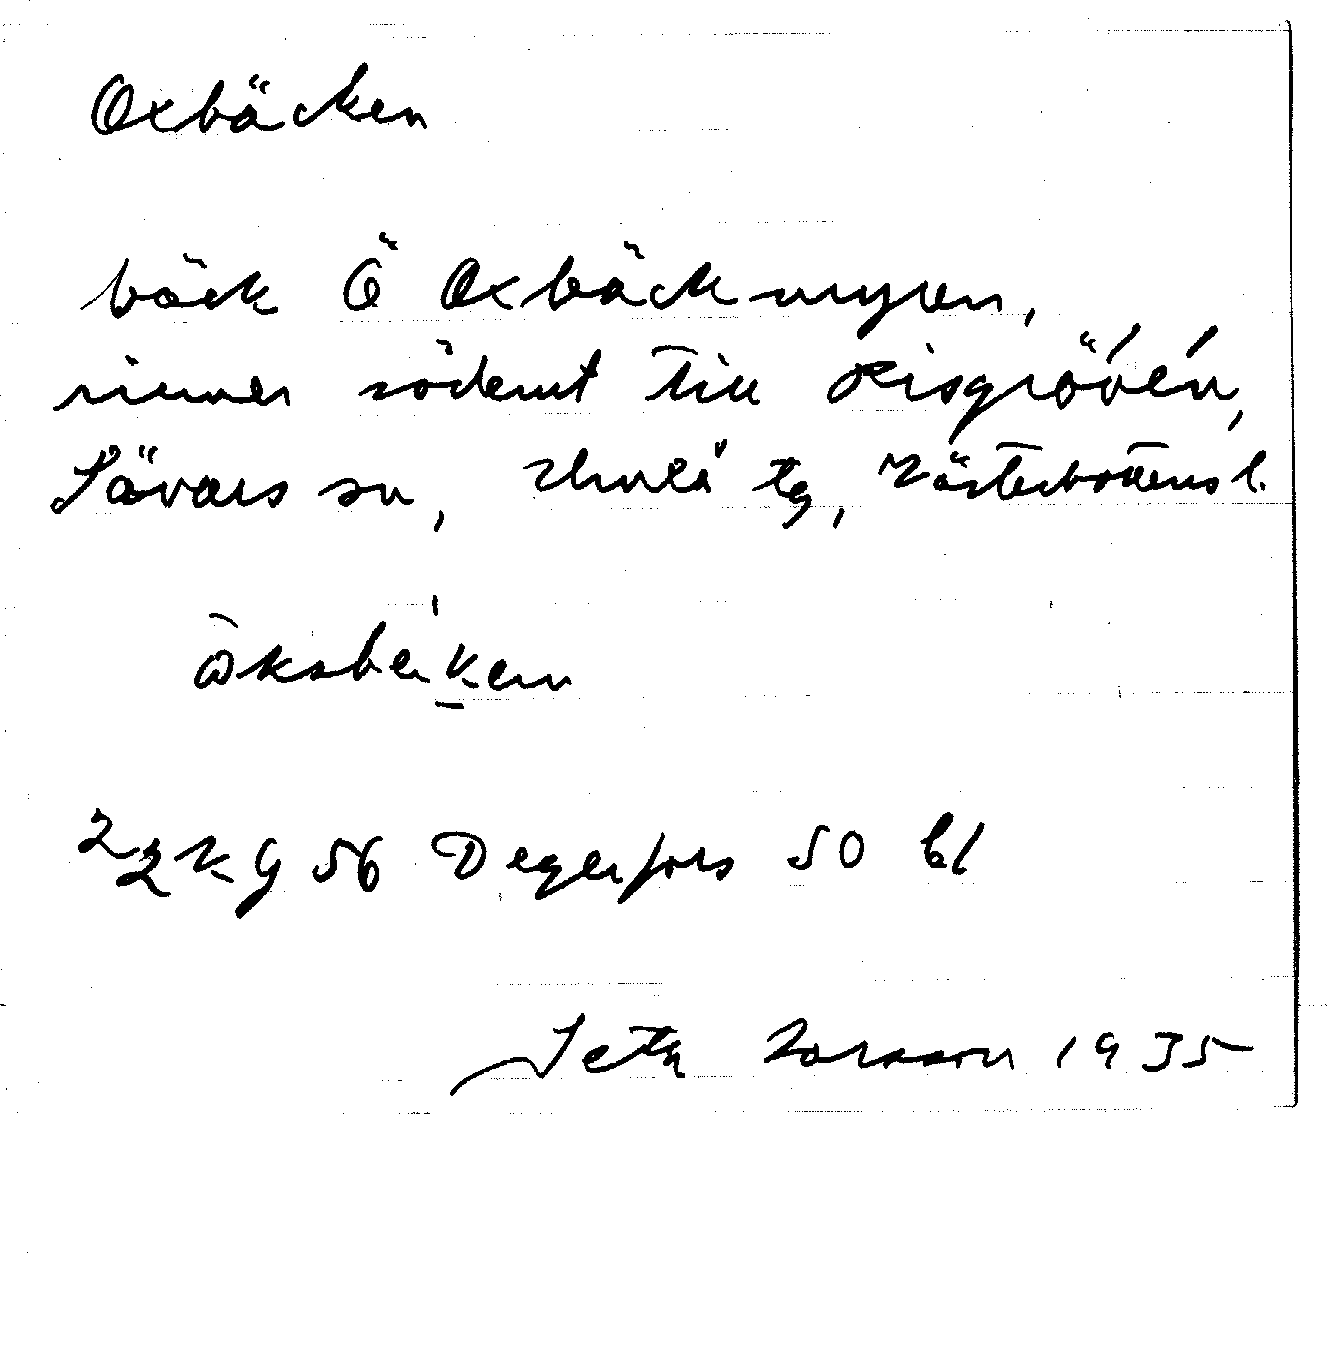 Oxbäcken
bäck Ö Oxbäckmyren,
rinner söderut till Risgröven,
Sävars sn, Umeå tg, Västerbottens l.
Degerfors 50 bl
Seth Larsson 1935